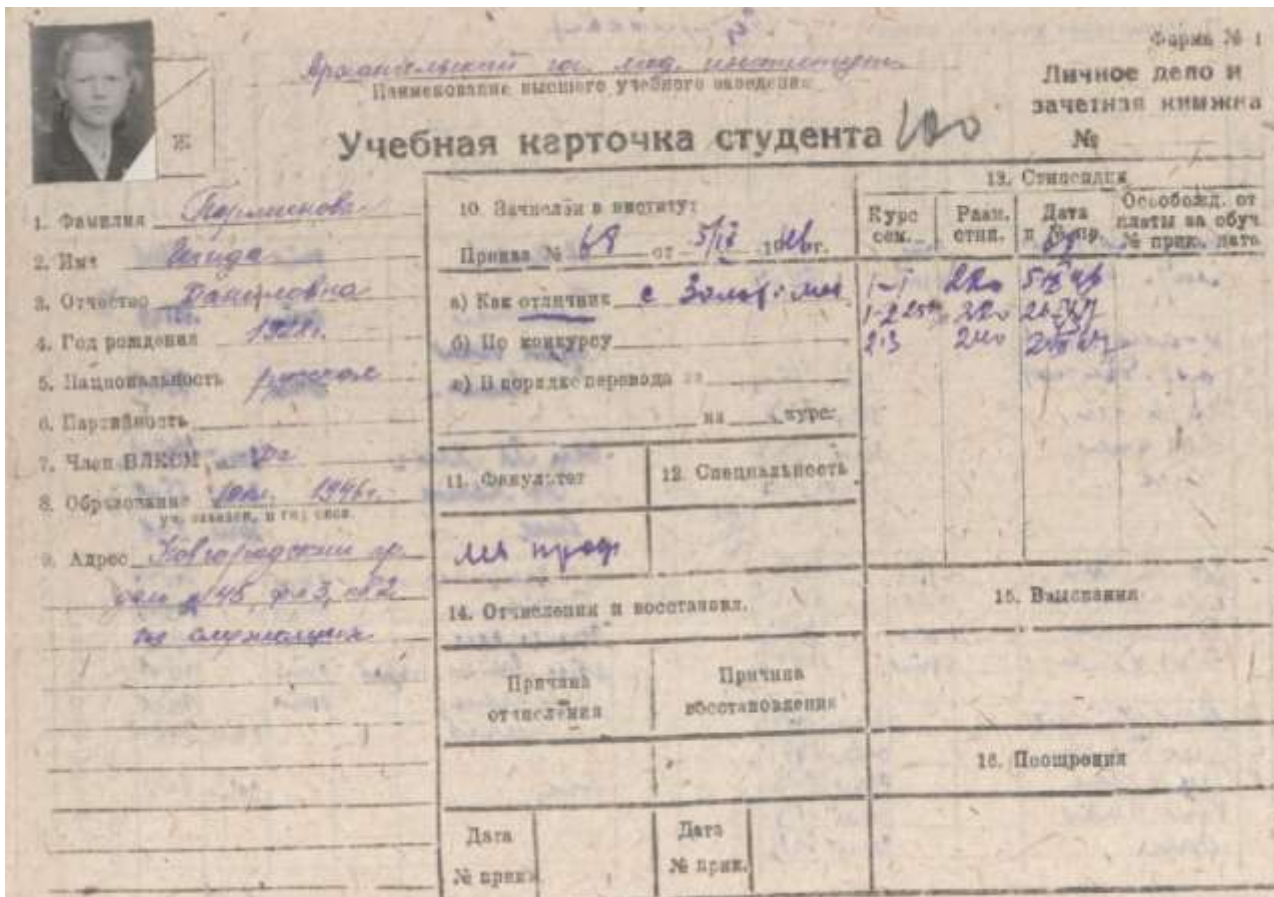 Форма № 1
Архангельский гос. мед. институт
Наименование высшего учебного заведения
Личное дело и
зачетная книжка
№
Учебная карточка студента
Ж
1. Фамилия
2. Имя
3. Отчество Даниловна
4. Год рождения 1928г.
5. Национальность русская
6. Партийность
7. Член ВЛКСМ да
8. Образование 10 кл. 1946г.
уч. заведен. и год окон.
9. Адрес Новгородский пр.
дом №145, фл 3, кв 2
из служащих
10. Зачислен в институт
Приказ № 68 от 5/IX 1946г.
а) Как отличник с Золот. мед
б) По конкурсу
в) В порядке перевода из
на курс
11. Факультет
12. Специальность
леч проф
13. Стипендия
Курс сем.
Разм. стип.
Дата и № пр.
Освобожд. от платы за обуч. № прик. дата
1-1 220
1-2 25%
2-3 240
14. Отчисления и восстановл.
Причина отчисления
Причина восстановления
Дата
№ прик.
Дата
№ прик.
15. Взыскания
16. Поощрения